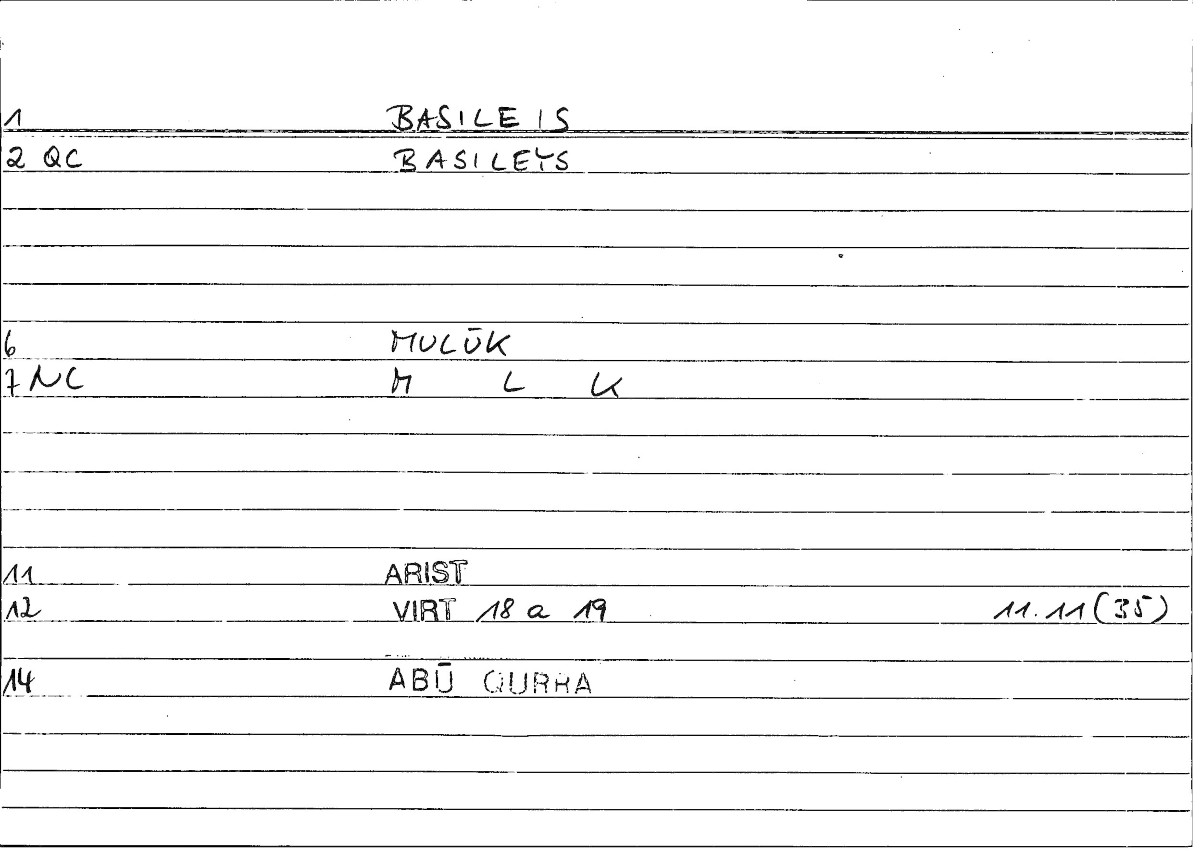 1 BASILEIS
2 QC BASILEYS
6 MULŪK
7 NC M L K
11 ARIST
12 VIRT 18 a 19 11.11(35)
14 ABŪ QURRA